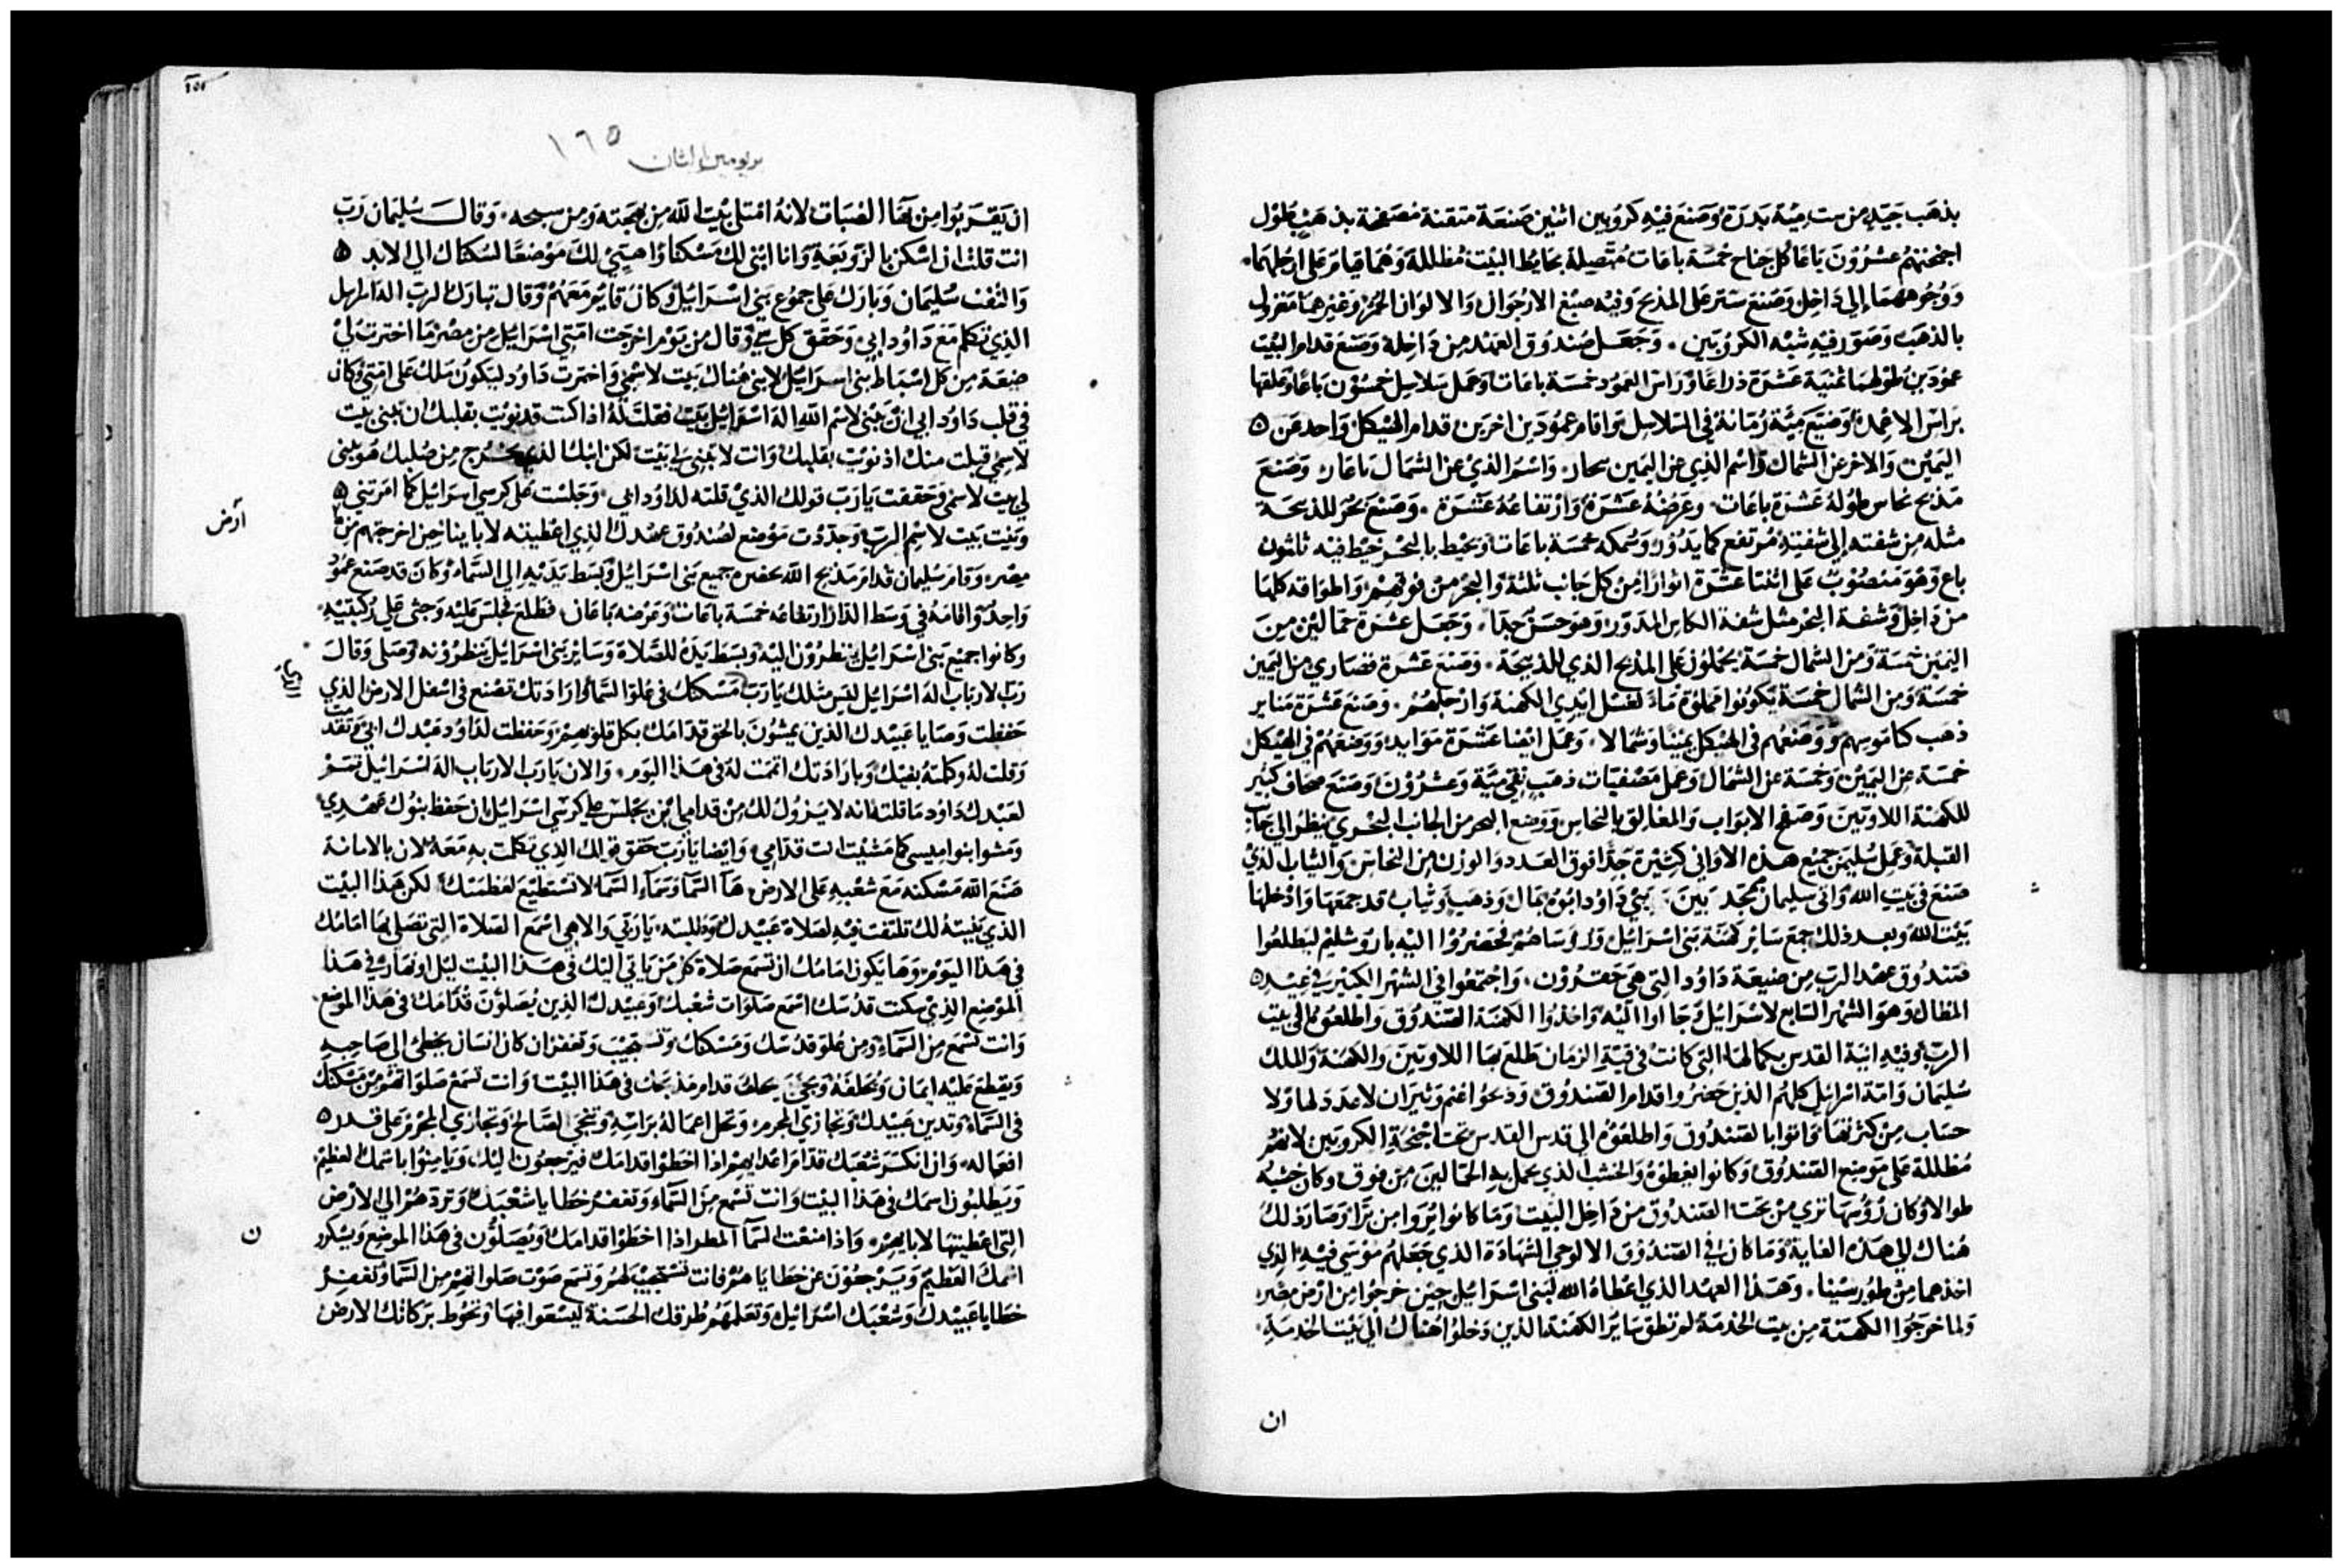 بذهب جيد من ست مية بدرة وصنع فيه كروبين اثنين صنعة متقنة مصفحة بذهب بطول
اجنحتهم عشرون باعا كل جناح خمسة باعات متصلة بحايط البيت مظللة وهما قيام على ارجلهما
ووجوههما الي داخل وصنع ستر على المذبح وفيه صبغ الارجوان والالوان الحمر وغيرهما مغزول
بالذهب وصور فيه شبه الكروبين وجعل صندوق العهد من داخله وصنع قدام البيت
عمودين طولهما ثمنية عشرة ذراعا وراس العمود خمسة باعات وعمل سلاسل خمسون باعا وعلقها
براس الاعمدة وصنع مية رمانة في السلاسل واقام عمودين اخرين قدام الهيكل واحد عن
اليمين والاخر عن الشمال واسم الذي عن اليمين واسم الذي عن الشمال وصنع
مذبح نحاس طوله عشرة باعات وعرضه عشرة وارتفاعه عشرة وصنع بحر للمذبحة
مثله من شفته الي شفته مرتفع كما يدور وسمكه خمسة باعات وتحيط بالبحر خيط فيه ثلثون
باع وهو منصوب على اثنتا عشرة اثوارا من كل جانب ثلثة والبحر من فوقهم واطواقه كلها
من داخل وشفة البحر مثل شفة الكاس المدور وهو حسن جدا وجعل عشرة حمالين من
اليمين خمسة ومن الشمال خمسة يحملون على المذبح الذي للذبيحة وصنع عشرة قصاري من اليمين
خمسة ومن الشمال خمسة يكونوا مملوة ماء لغسل ايدي الكهنة وارجلهم وصنع عشرة مناير
ذهب كناموسهم ووضعهم في الهيكل يمينا وشمالا وعمل ايضا عشرة موايد ووضعهم في الهيكل
خمسة عن اليمين وخمسة عن الشمال وعمل مصفيات ذهب نقي مية وعشرون وصنع صحاف كبير
للكهنة اللاويين وصفح الابواب والمغالق بالنحاس ووضع البحر من الجانب البحري ينظر الي جانب
القبلة وعمل سليمن جميع هذه الاواني كثيرة جدا فوق العدد والوزن من النحاس والثياب الذي
صنع في بيت الله واتى سليمان بمجد بين بني داود ابوه بمال وذهب وثياب قد جمعها وادخلها
بيت الله وبعد ذلك جمع ساير كهنة بني اسراييل وروساهم فحضروا اليه باروشليم ليطلعوا
صندوق عهد الرب من ضيعة داود التي هي حقرون واجتمعوا في الشهر الكبير في عيد
المظال وهو الشهر السابع لاسراييل وجا اوا اليه واخذوا الكهنة الصندوق واطلعوه الي بيت
الرب وفيه انية القدس بكمالها التي كانت في قبة الزمان طلع بها اللاويين والكهنة والملك
سليمان وامة اسراييل كلهم الذين حضروا قدام الصندوق وذبحوا غنم وثيران لا عدد لها ولا
حساب من كثرتها واتوا بالصندوق واطلعوه الي قدس القدس تحت اجنحة الكروبين لانهم
مظللة على موضع الصندوق وكانوا يغطوه والخشب الذي يحمل به الحمالين من فوق وكان خشبه
طوالا وكان رؤسها تري من تحت الصندوق من داخل البيت وما كانوا يروا من برا وصار ذلك
هناك الي هذه الغاية وما كان في الصندوق الا لوحي الشهادة الذي جعلهم موسي فيه الذي
اخذهما من طور سينا وهذا العهد الذي اعطاه الله لبني اسراييل حين خرجوا من ارض مصر
ولما خرجوا الكهنة من بيت الخدمة لم تطق ساير الكهنة الذين دخلوا هناك الي بيت الخدمة
ان
١٦٥
بربومين الثان
ان يقربوا من الضبات لانه امتلي بيت الله من بهجته ومن سبحه وقال سليمان رب
انت قلت ان اسكن بالزوبعة وانا ابني لك مسكنا واهيي لك موضعا لسكناك الي الابد
والتفت سليمان وبارك على جموع بني اسراييل وكان قايم معهم وقال تبارك الرب اله اسراييل
الذي تكلم مع داود ابي وحقق كل شي وقال من يوم اخرجت امتي اسراييل من مصر ما اخترت لي
ضيعة من كل اسباط بني اسراييل لابني هناك بيت لاسمي واخترت داود ليكون ملك على امتي وكان
في قلب داود ابي ان يبني لاسم الله اله اسراييل بيت فقلت له اذا كنت قد نويت بقلبك ان تبني بيت
لاسمي قبلت منك اذ نويت بقلبك وانت لا تبني لي بيت لكن ابنك الذي يخرج من صلبك هو يبني
لي بيت لاسمي وحققت يا رب قولك الذي قلته لداود ابي وجلست على كرسي اسراييل كما امرتني
وبنيت بيت لاسم الرب وجددت موضع لصندوق عهدك الذي اعطيته لاباينا حين اخرجتهم من
ارض
مصر وقام سليمان قدام مذبح الله بحضرة جميع بني اسراييل وبسط يديه الي السماء وكان قد صنع عمود
واحد واقامه في وسط الدار ارتفاعه خمسة باعات وعرضه باعان فطلع فجلس عليه وجثي علي ركبتيه
وكانوا جميع بني اسراييل ينظرون اليه وبسط يده للصلاة وساير بني اسراييل ينظرونه وصلى وقال
رب الارباب اله اسراييل ليس مثلك يا رب مسكنك في علو السماء وارادتك تصنع في اسفل الارض الذي
حفظت وصايا عبيدك الذين يمشون بالحق قدامك بكل قلوبهم وحفظت لداود عبدك ابي
وقلت له وكلمته بفيك وبارادتك اتممت له في هذا اليوم والان يا رب الارباب اله اسراييل تتم
لعبدك داود ما قلته انه لا يزول لك من قدامي ابن يجلس علي كرسي اسراييل ان حفظ بنوك عهدي
ومشوا بنواميسي كما مشيت انت قدامي وايضا يا رب حقق قولك الذي تكلمت به معه لان بالامانة
صنع الله مسكنه مع شعبه على الارض ها السما وسماء السما لا تستطيع لعظمتك لكن هذا البيت
الذي بنيته لك تلتفت فيه لصلاة عبيدك وطلبته يا ربي والاهي اسمع الصلاة التي تصلي بها امامك
في هذا اليوم وها يكون امامك ان تسمع صلاة كل من ياتي اليك في هذا البيت ليل او نهار في هذا
الموضع الذي سكنت قدسك اسمع صلوات شعبك وعبيدك الذين يصلون قدامك في هذا الموضع
وانت تسمع من السماء ومن علو قدسك ومسكنك وتستجيب وتغفر ان كان انسان يخطي الي صاحبه
ويقطع عليه ايمان ويحلفه ويجي يحلف قدام مذبحك في هذا البيت وانت تسمع صلواتهم من مسكنك
في السماء وتدين عبيدك وتجازي المجرم وتحل اعماله براسه وتنجي الصالح وتجازي المجرم على قدر
افعاله وان انكسر شعبك قدام اعدايهم اذا اخطوا قدامك فيرجعون اليك ويامنوا باسمك العظيم
ويطلبون اسمك في هذا البيت وانت تسمع من السماء وتغفر خطايا شعبك وتردهم الي الارض
التي اعطيتها لابايهم واذا منعت السما المطر اذا اخطوا قدامك ويصلون في هذا الموضع ويشكرو
ن
اسمك العظيم ويرجعون عن خطاياهم فانت تستجيب لهم وتسمع صوت صلواتهم من السما وتغفر
خطايا عبيدك وشعبك اسراييل وتعلمهم طرقك الحسنة ليسعوا فيها وتحوط بركاتك الارض